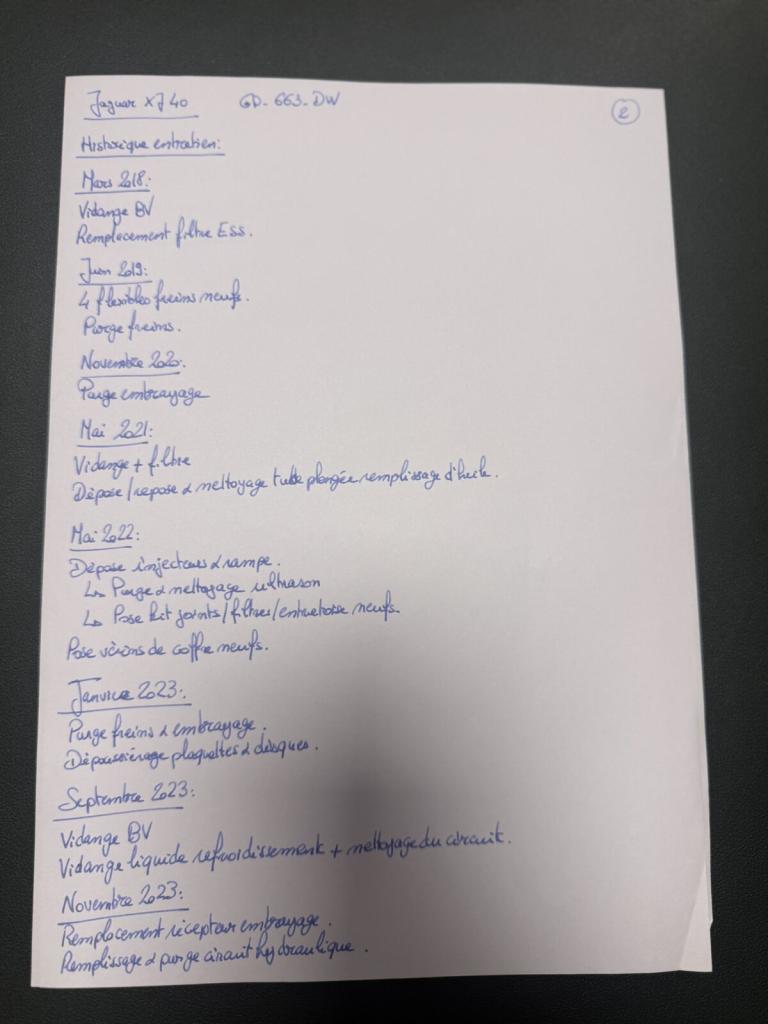 Jaguar XJ40 GD-663-DW
2
Historique entretien:
Mars 2018:
Vidange BV
Remplacement filtre Ess.
Juin 2019:
4 flexibles freins neufs.
Purge freins.
Novembre 2020:
Purge embrayage
Mai 2021:
Vidange + filtre
Dépose/repose & nettoyage tube plongée remplissage d'huile.
Mai 2022:
Dépose injecteurs & rampe.
↳ Purge & nettoyage ultrason
↳ Pose kit joints/filtres/entretoise neufs.
Pose vérins de coffre neufs.
Janvier 2023:
Purge freins & embrayage.
Dépoussiérage plaquettes & disques.
Septembre 2023:
Vidange BV
Vidange liquide refroidissement + nettoyage du circuit.
Novembre 2023:
Remplacement récepteur embrayage.
Remplissage & purge circuit hydraulique.